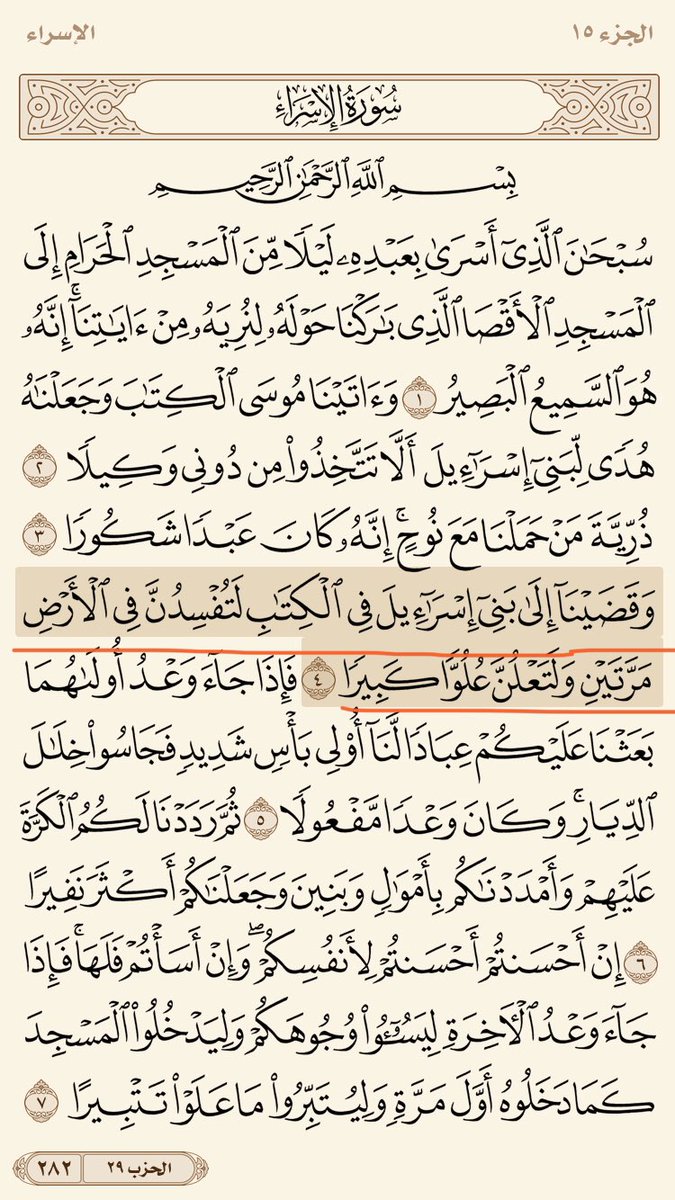 الجزء ١٥
الإسراء
سُورَةُ الْإِسْرَاءِ
بِسْمِ ٱللَّهِ ٱلرَّحْمَٰنِ ٱلرَّحِيمِ
سُبْحَٰنَ ٱلَّذِىٓ أَسْرَىٰ بِعَبْدِهِۦ لَيْلًا مِّنَ ٱلْمَسْجِدِ ٱلْحَرَامِ إِلَى
ٱلْمَسْجِدِ ٱلْأَقْصَا ٱلَّذِى بَٰرَكْنَا حَوْلَهُۥ لِنُرِيَهُۥ مِنْ ءَايَٰتِنَآ ۚ إِنَّهُۥ
هُوَ ٱلسَّمِيعُ ٱلْبَصِيرُ ١ وَءَاتَيْنَا مُوسَى ٱلْكِتَٰبَ وَجَعَلْنَٰهُ
هُدًى لِّبَنِىٓ إِسْرَٰٓءِيلَ أَلَّا تَتَّخِذُوا۟ مِن دُونِى وَكِيلًا ٢
ذُرِّيَّةَ مَنْ حَمَلْنَا مَعَ نُوحٍ ۚ إِنَّهُۥ كَانَ عَبْدًا شَكُورًا ٣
وَقَضَيْنَآ إِلَىٰ بَنِىٓ إِسْرَٰٓءِيلَ فِى ٱلْكِتَٰبِ لَتُفْسِدُنَّ فِى ٱلْأَرْضِ
مَرَّتَيْنِ وَلَتَعْلُنَّ عُلُوًّا كَبِيرًا ٤ فَإِذَا جَآءَ وَعْدُ أُولَىٰهُمَا
بَعَثْنَا عَلَيْكُمْ عِبَادًا لَّنَآ أُو۟لِى بَأْسٍ شَدِيدٍ فَجَاسُوا۟ خِلَٰلَ
ٱلدِّيَارِ ۚ وَكَانَ وَعْدًا مَّفْعُولًا ٥ ثُمَّ رَدَدْنَا لَكُمُ ٱلْكَرَّةَ
عَلَيْهِمْ وَأَمْدَدْنَٰكُم بِأَمْوَٰلٍ وَبَنِينَ وَجَعَلْنَٰكُمْ أَكْثَرَ نَفِيرًا
٦ إِنْ أَحْسَنتُمْ أَحْسَنتُمْ لِأَنفُسِكُمْ ۖ وَإِنْ أَسَأْتُمْ فَلَهَا ۚ فَإِذَا
جَآءَ وَعْدُ ٱلْءَاخِرَةِ لِيَسُۥٓـُٔوا۟ وُجُوهَكُمْ وَلِيَدْخُلُوا۟ ٱلْمَسْجِدَ
كَمَا دَخَلُوهُ أَوَّلَ مَرَّةٍ وَلِيُتَبِّرُوا۟ مَا عَلَوْا۟ تَتْبِيرًا ٧
الحزب ٢٩
٢٨٢